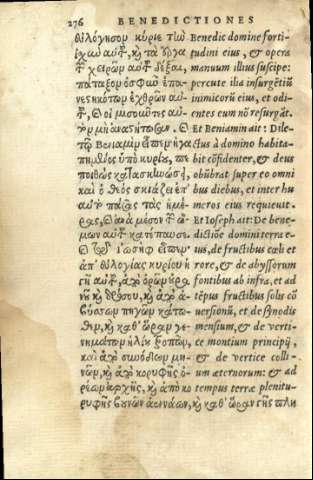 276 BENEDICTIONES
εὐλόγησον κύριε τὴν
ἰσχὺν αὐτοῦ, καὶ τὰ ἔργα
τῶν χειρῶν αὐτοῦ δέξαι,
πάταξον ὀσφὺν ἐπα-
νεστηκότων ἐχθρῶν αὐ-
τοῦ, καὶ οἱ μισοῦντες αὐ-
τὸν μὴ ἀναστήτωσαν. καὶ
τῷ Βενιαμὶν εἶπεν ἠγα-
πημένος ὑπὸ κυρίου, πε-
ποιθὼς κατασκηνώσει,
καὶ ὁ θεὸς σκιάζει ἐπ'
αὐτῷ πάσας τὰς ἡμέ-
ρας, καὶ ἀνὰ μέσον τῶν ὤ-
μων αὐτοῦ κατέπαυσεν.
καὶ τῷ ἰωσὴφ εἶπεν
ἀπ' εὐλογίας κυρίου ἡ
γῆ αὐτοῦ, ἀπὸ ὁρῶν οὐρα-
νοῦ καὶ δρόσου, καὶ ἀπὸ ἀ-
βύσσων πηγῶν κάτω-
θεν, καὶ καθ' ὥραν γε-
νημάτων ἡλίου τροπῶν,
καὶ ἀπὸ συνόδων μη-
νῶν, καὶ ἀπὸ κορυφῆς ὀ-
ρέων ἀρχῆς, καὶ ἀπὸ κο-
ρυφῆς βουνῶν ἀενάων, καὶ καθ' ὥραν γῆς πλη
Benedic domine forti-
tudini eius, & opera
manuum illius suscipe:
percute ilia insurgẽtiũ
inimicorũ eius, et odi-
entes eum nõ resurgãt.
Et Beniamin ait: Dile-
ctus à domino habita-
bit cõfidenter, & deus
obũbrat super eo omni
bus diebus, et inter hu
meros eius requieuit.
Et Ioseph ait: De bene-
dictiõe domini terra e-
ius, de fructibus cœli et
rore, & de abyssorum
fontibus ab infra, et ad
tẽpus fructibus solis cõ
uersionũ, et de synodis
mensium, & de verti-
ce montium principij,
& de vertice colli-
um æternorum: & ad
tempus terræ plenitu-